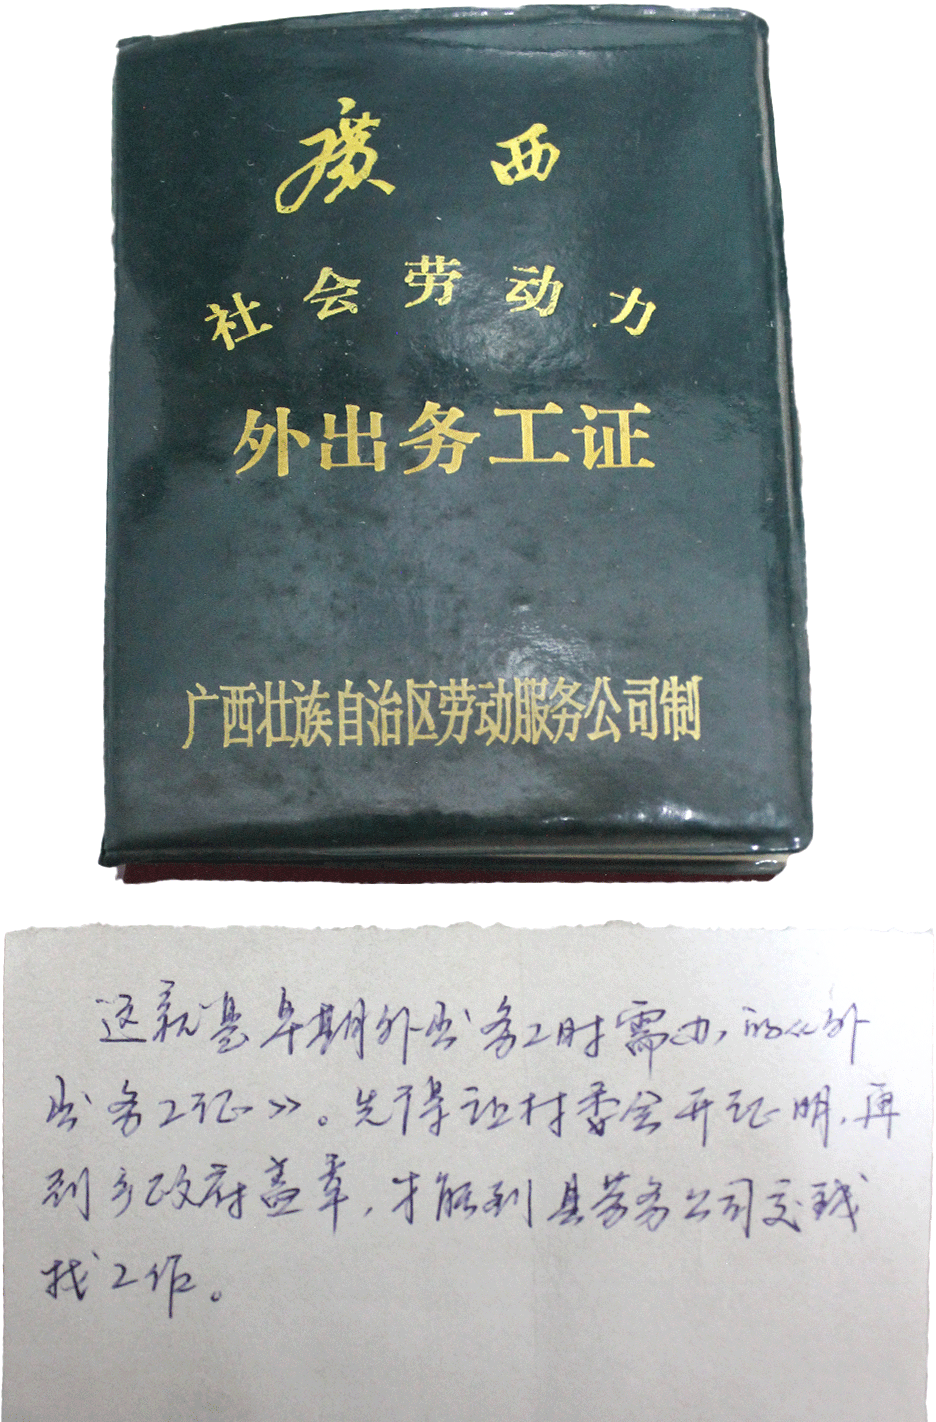 廣西
社会劳动力
外出务工证
广西壮族自治区劳动服务公司制
这就是早期外出务工时需办的《外
出务工证》。先得让村委会开证明，再
到乡政府盖章，才能到县劳务公司交钱
找工作。